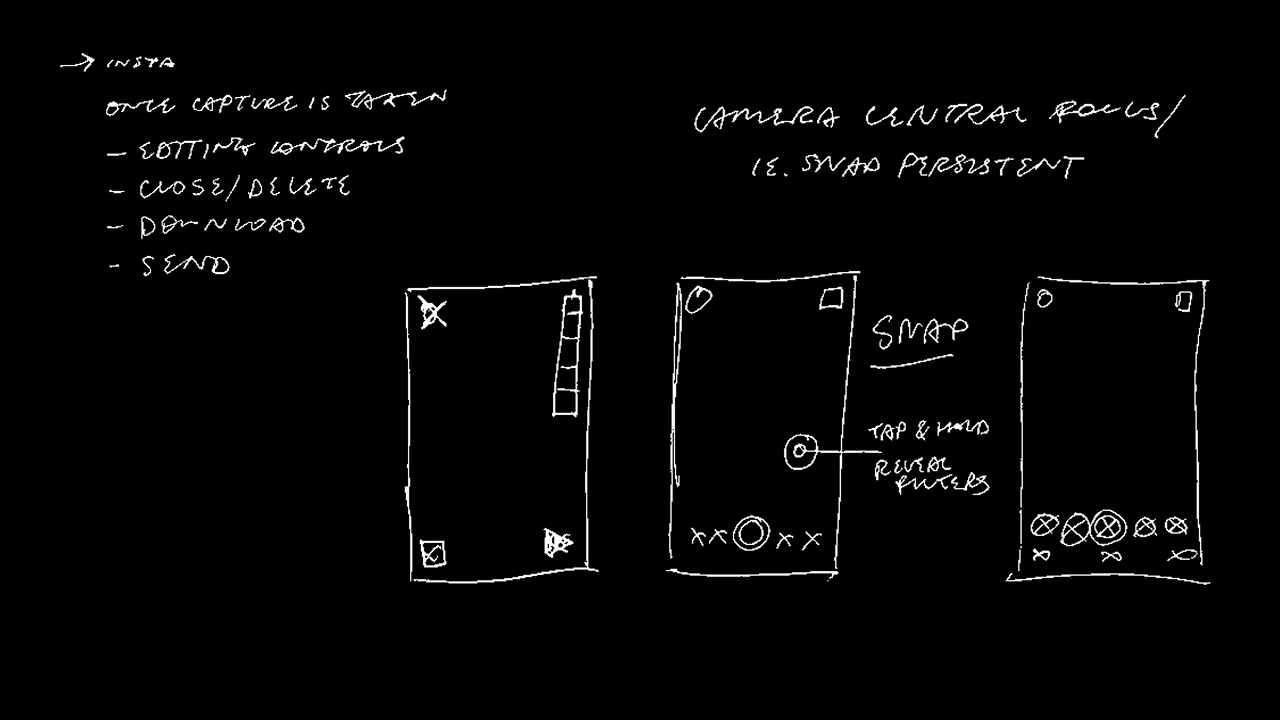 → INSTA
ONCE CAPTURE IS TAKEN
- EDITING CONTROLS
- CLOSE/DELETE
- DOWNLOAD
- SEND
CAMERA CENTRAL FOCUS/
IE. SNAP PERSISTENT
SNAP
TAP & HOLD
REVEAL
FILTERS